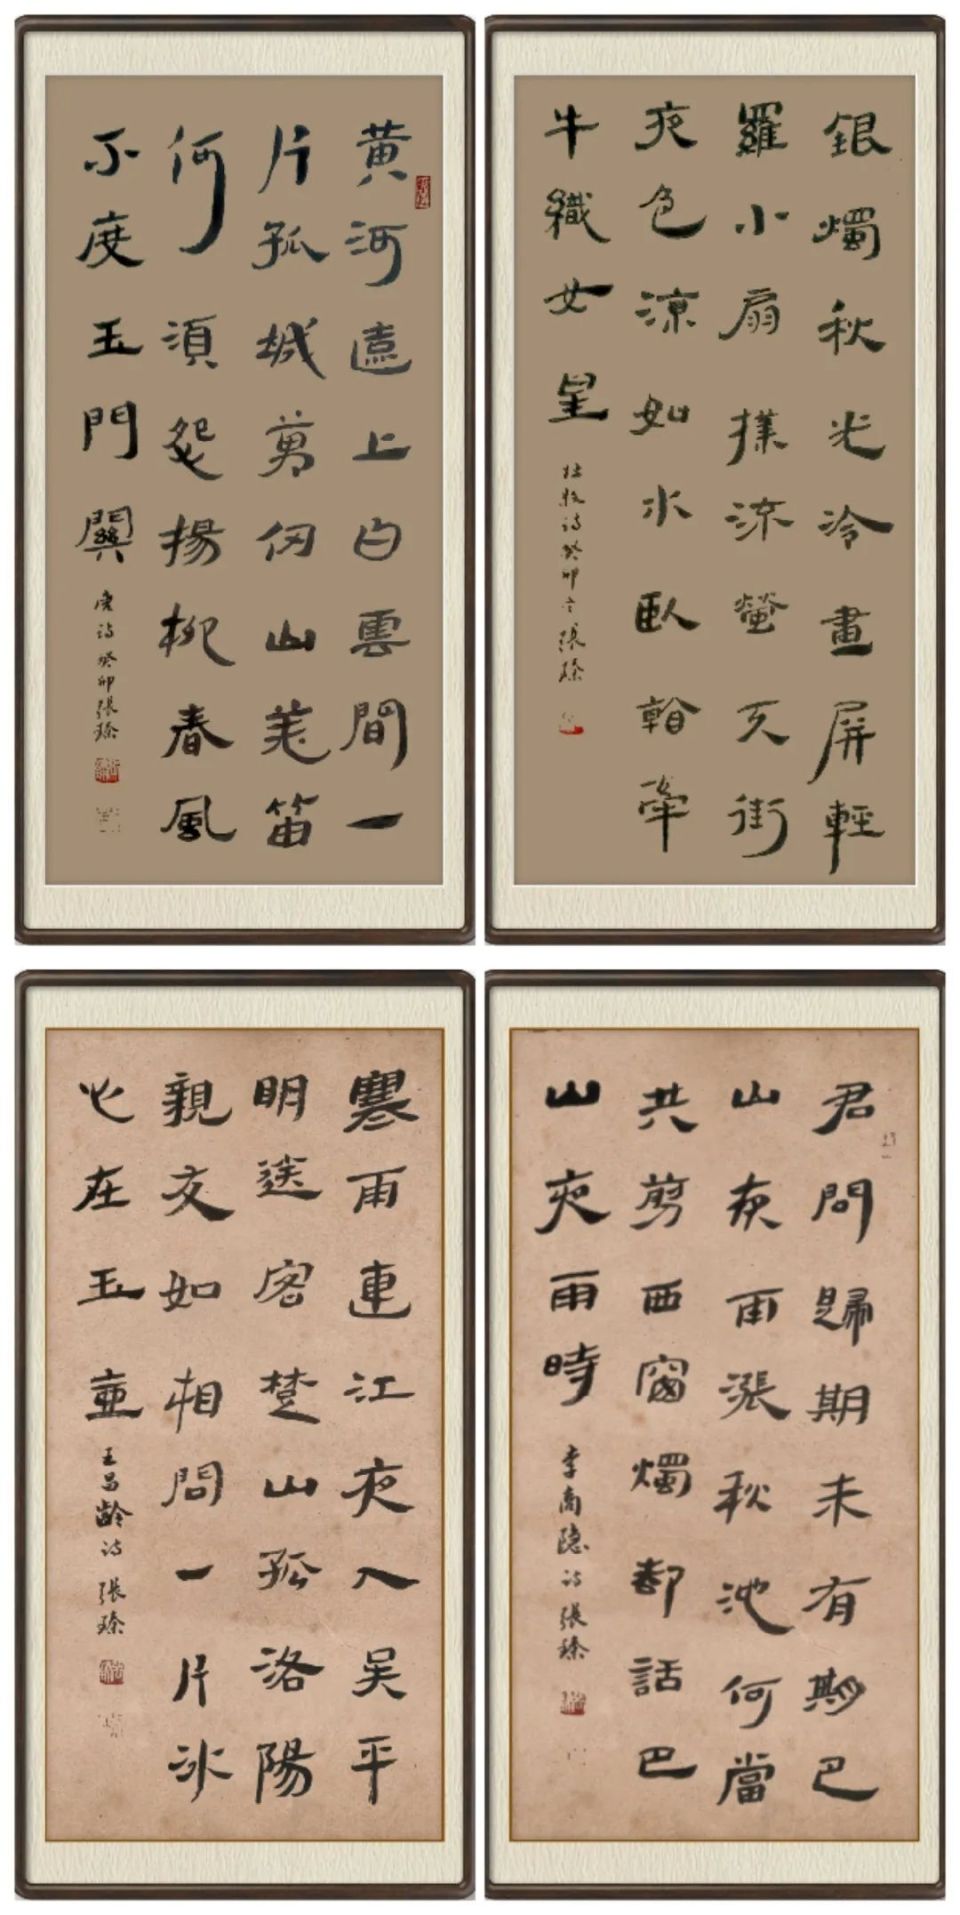 黄河遠上白雲間一
片孤城萬仞山羌笛
何須怨揚柳春風
不度玉門關 唐詩癸卯張臻
銀燭秋光冷畫屏輕
羅小扇撲流螢天街
夜色涼如水臥看牽
牛織女星 杜牧詩癸卯冬張臻
寒雨連江夜入吳平
明送客楚山孤洛陽
親友如相問一片冰
心在玉壺 王昌齡詩張臻
君問歸期未有期巴
山夜雨漲秋池何當
共剪西窗燭卻話巴
山夜雨時 李商隱詩張臻